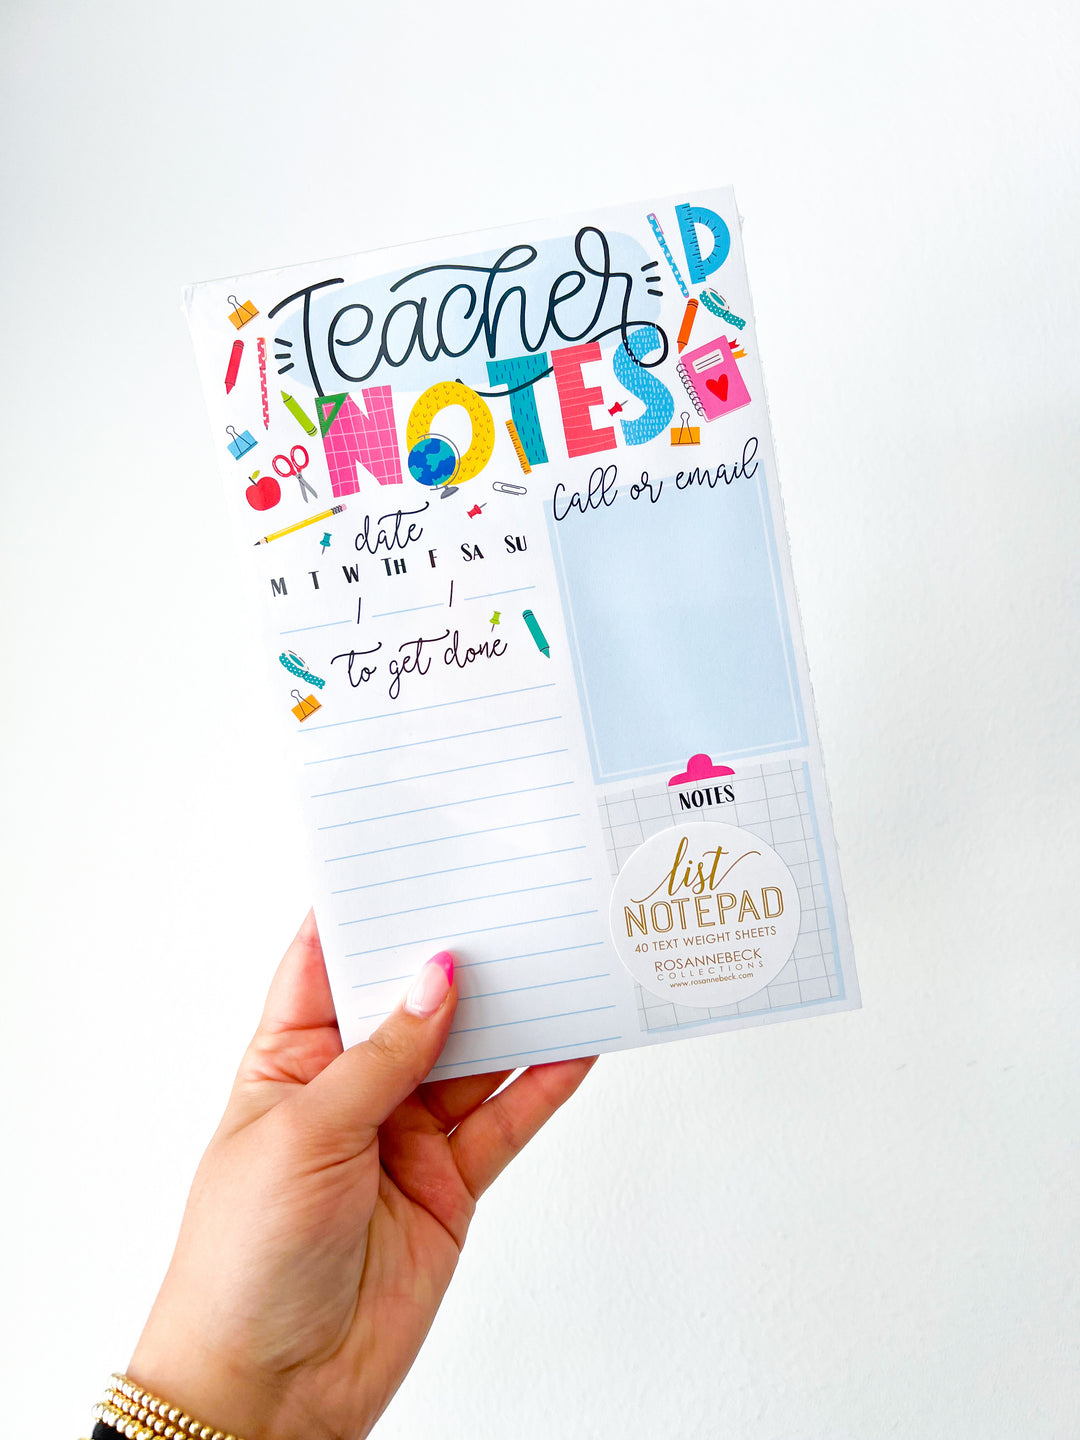 Teacher
NOTES
Call or email
date
M T W TH F SA SU
/ /
to get done
NOTES
list
NOTEPAD
40 TEXT WEIGHT SHEETS
ROSANNEBECK
COLLECTIONS
www.rosannebeck.com